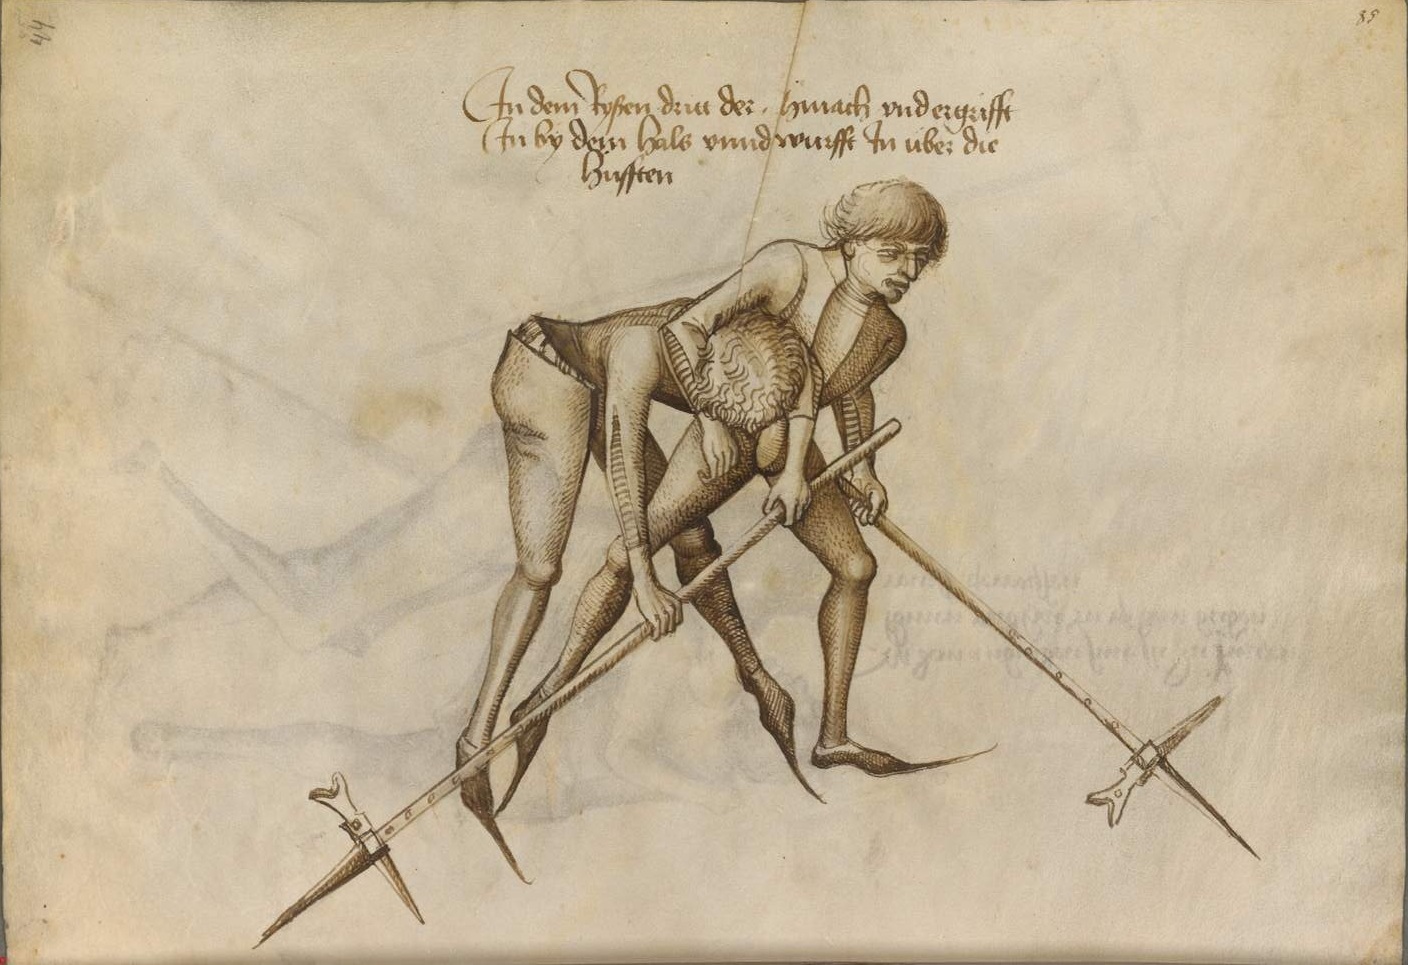 44
85
In dem Ryßen dritt der . hinach vnd ergrifft
In by dem hals vnnd wurfft In über die
hüfften